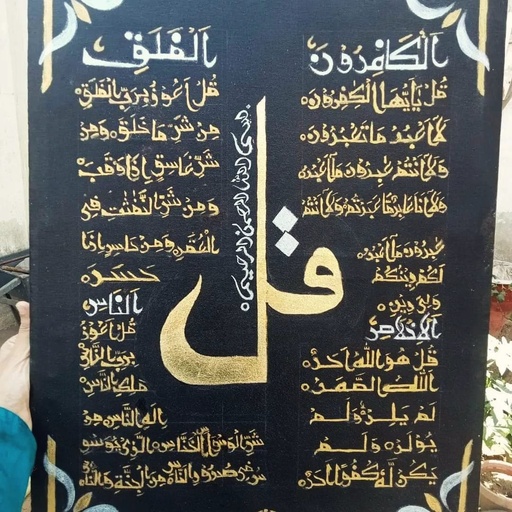 الكافرون
قل يأيها الكفرون
لا أعبد ما تعبدون
ولا أنتم عبدون ما أعبد
ولا أنا عابد ما عبدتم ولا أنتم
عبدون ما أعبد
لكم دينكم
ولي دين
الاخلاص
قل هو الله أحد
الله الصمد
لم يلد ولم
يولد ولم
يكن له كفوا أحد
قل
بسم الله الرحمن الرحيم
الفلق
قل أعوذ برب الفلق
من شر ما خلق ومن
شر غاسق إذا وقب
ومن شر النفثت في
العقد ومن حاسد إذا
حسد
الناس
قل أعوذ
برب الناس
ملك الناس
اله الناس من
شر الوسواس الخناس الذي يوسوس
في صدور الناس من الجنة والناس